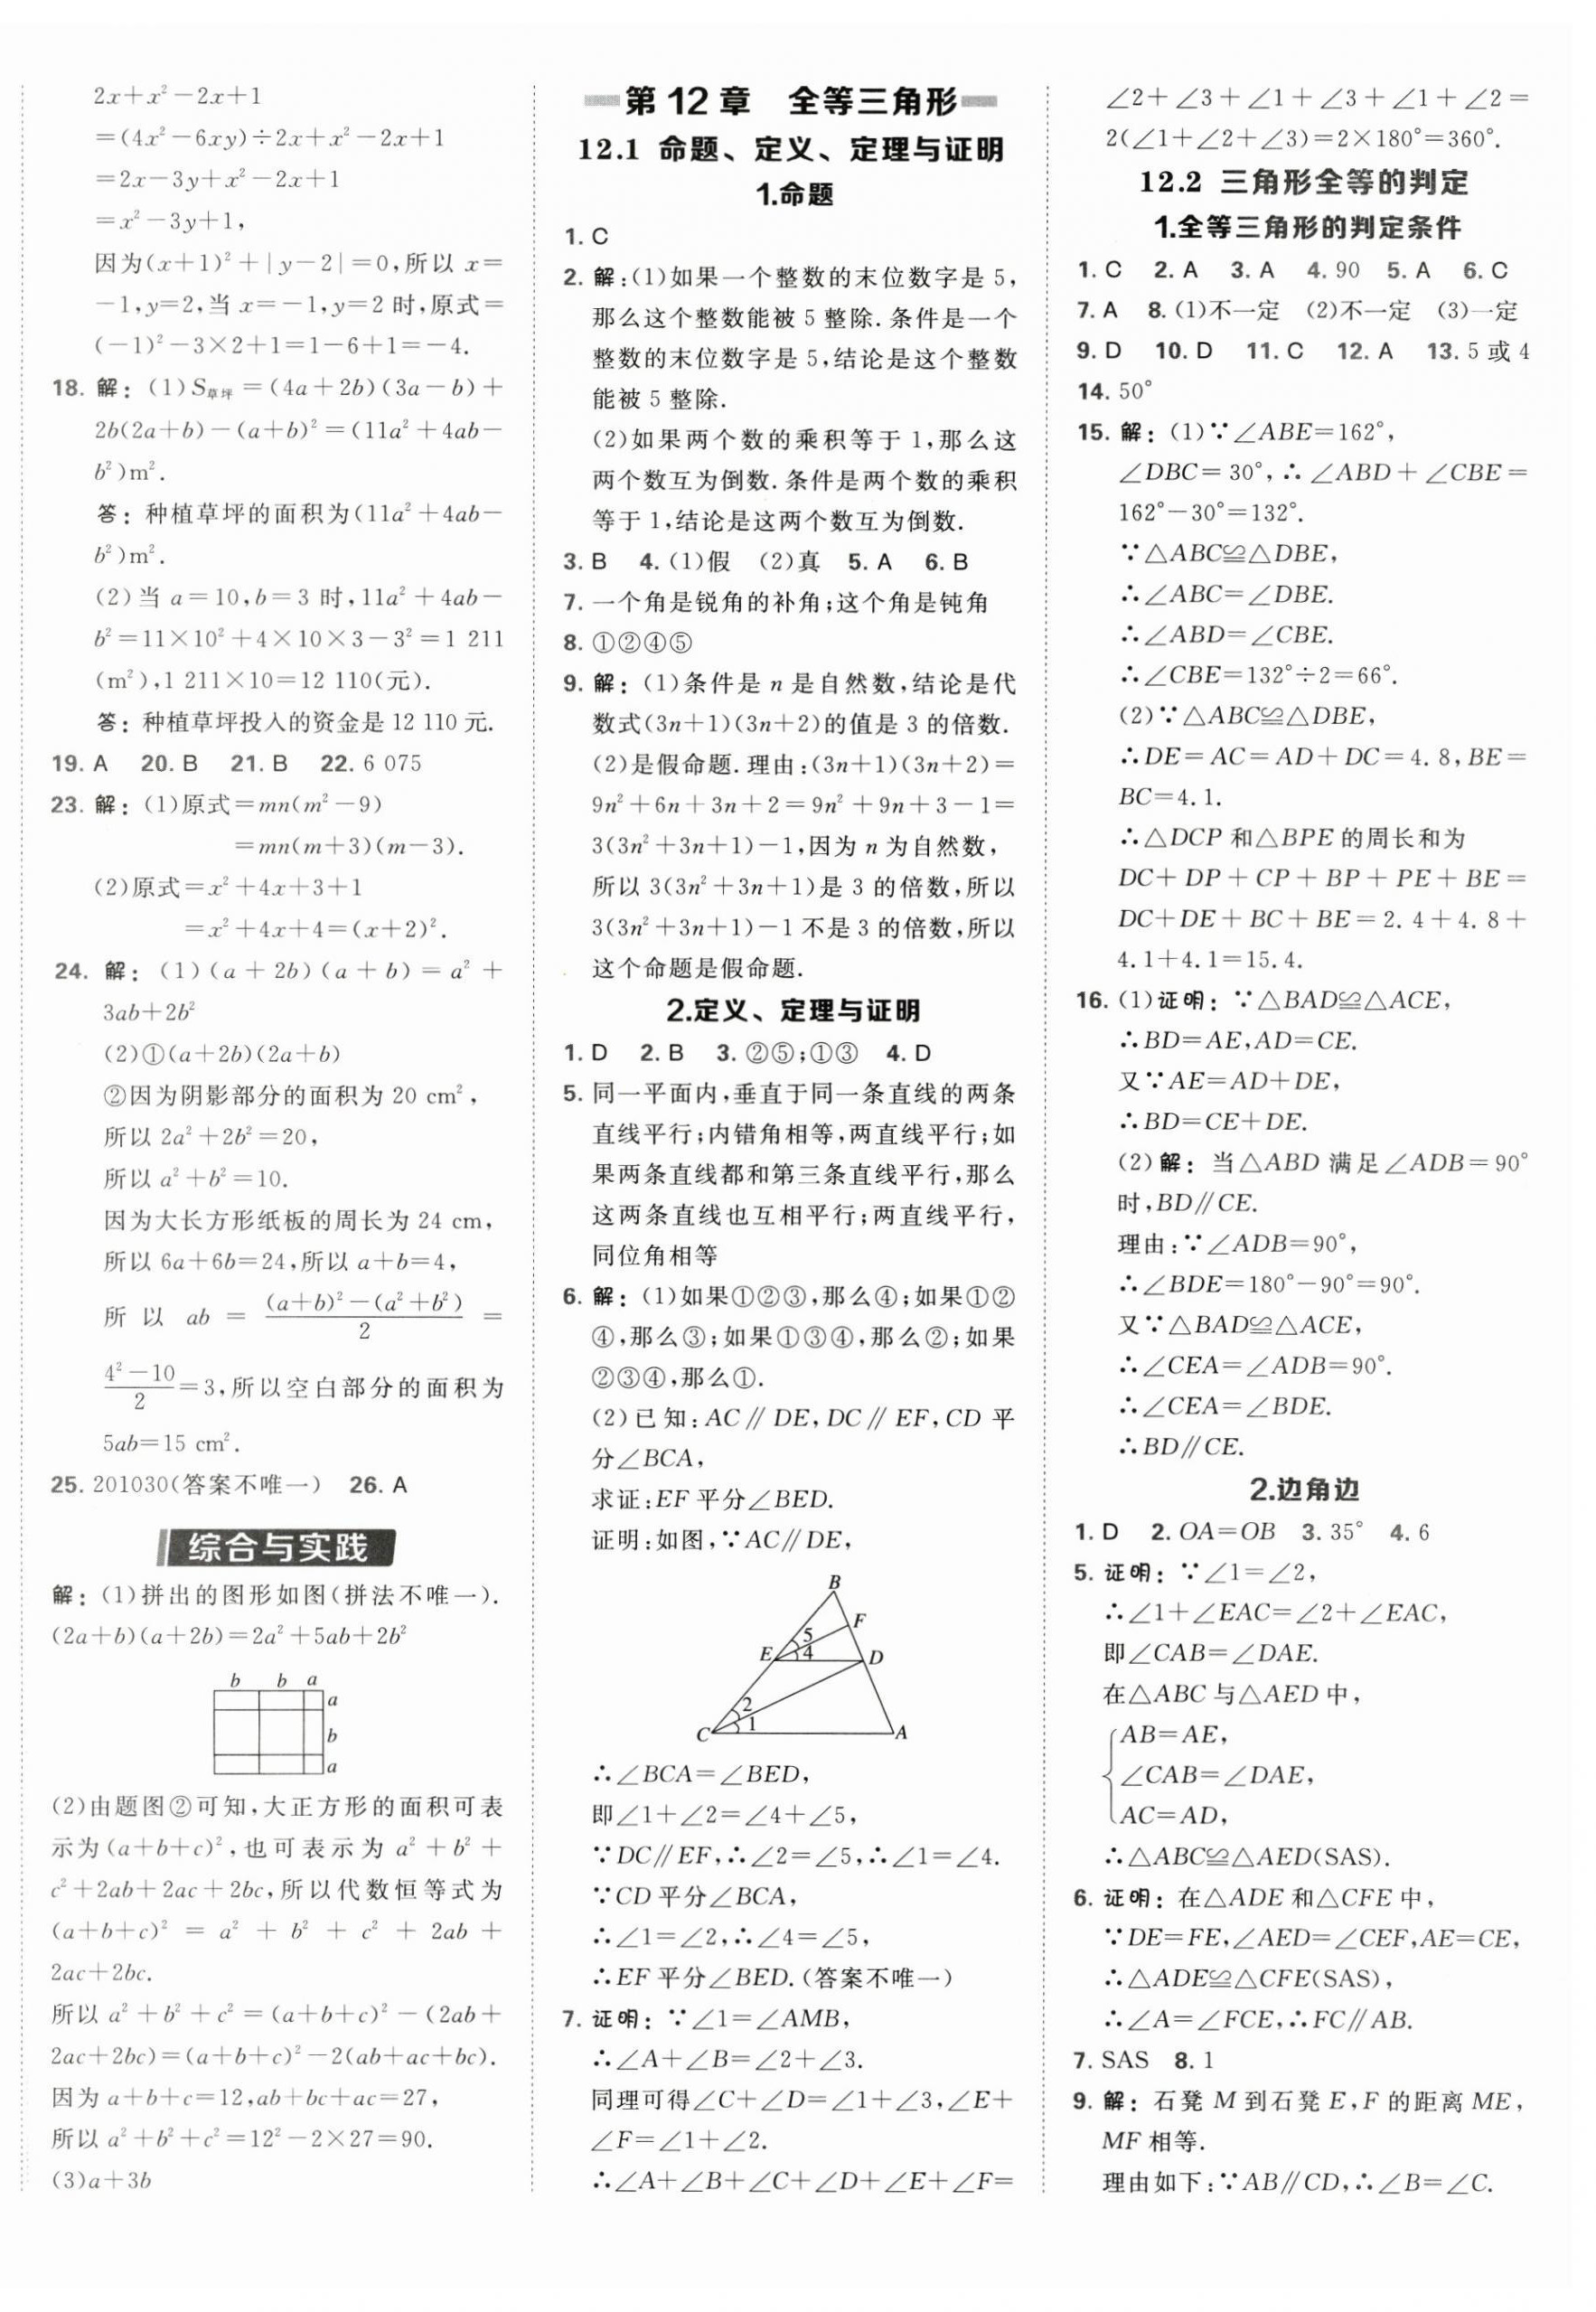 2x+x²-2x+1
=(4x²-6xy)÷2x+x²-2x+1
=2x-3y+x²-2x+1
=x²-3y+1,
因为(x+1)²+|y-2|=0,所以 x=
-1,y=2,当 x=-1,y=2 时,原式=
(-1)²-3×2+1=1-6+1=-4.
18. 解:(1)S草坪=(4a+2b)(3a-b)+
2b(2a+b)-(a+b)²=(11a²+4ab-
b²)m².
答:种植草坪的面积为(11a²+4ab-
b²)m².
(2)当 a=10,b=3 时,11a²+4ab-
b²=11×10²+4×10×3-3²=1 211
(m²),1 211×10=12 110(元).
答:种植草坪投入的资金是 12 110 元.
19. A 20. B 21. B 22. 6 075
23. 解:(1)原式=mn(m²-9)
=mn(m+3)(m-3).
(2)原式=x²+4x+3+1
=x²+4x+4=(x+2)².
24. 解:(1)(a+2b)(a+b)=a²+
3ab+2b²
(2)①(a+2b)(2a+b)
②因为阴影部分的面积为 20 cm²,
所以 2a²+2b²=20,
所以 a²+b²=10.
因为大长方形纸板的周长为 24 cm,
所以 6a+6b=24,所以 a+b=4,
所以 ab = ((a+b)²-(a²+b²))/2 =
(4²-10)/2=3,所以空白部分的面积为
5ab=15 cm².
25. 201030(答案不唯一) 26. A
综合与实践
解:(1)拼出的图形如图(拼法不唯一).
(2a+b)(a+2b)=2a²+5ab+2b²
b b a
a
b
a
(2)由题图②可知,大正方形的面积可表
示为(a+b+c)²,也可表示为 a²+b²+
c²+2ab+2ac+2bc,所以代数恒等式为
(a+b+c)² = a² + b² + c² + 2ab +
2ac+2bc.
所以 a²+b²+c²=(a+b+c)²-(2ab+
2ac+2bc)=(a+b+c)²-2(ab+ac+bc).
因为 a+b+c=12,ab+bc+ac=27,
所以 a²+b²+c²=12²-2×27=90.
(3)a+3b
第 12 章 全等三角形
12.1 命题、定义、定理与证明
1.命题
1. C
2. 解:(1)如果一个整数的末位数字是 5,
那么这个整数能被 5 整除. 条件是一个
整数的末位数字是 5,结论是这个整数
能被 5 整除.
(2)如果两个数的乘积等于 1,那么这
两个数互为倒数. 条件是两个数的乘积
等于 1,结论是这两个数互为倒数.
3. B 4. (1)假 (2)真 5. A 6. B
7. 一个角是锐角的补角;这个角是钝角
8. ①②④⑤
9. 解:(1)条件是 n 是自然数,结论是代
数式(3n+1)(3n+2)的值是 3 的倍数.
(2)是假命题. 理由:(3n+1)(3n+2)=
9n²+6n+3n+2=9n²+9n+3-1=
3(3n²+3n+1)-1,因为 n 为自然数,
所以 3(3n²+3n+1)是 3 的倍数,所以
3(3n²+3n+1)-1 不是 3 的倍数,所以
这个命题是假命题.
2.定义、定理与证明
1. D 2. B 3. ②⑤;①③ 4. D
5. 同一平面内,垂直于同一条直线的两条
直线平行;内错角相等,两直线平行;如
果两条直线都和第三条直线平行,那么
这两条直线也互相平行;两直线平行,
同位角相等
6. 解:(1)如果①②③,那么④;如果①②
④,那么③;如果①③④,那么②;如果
②③④,那么①.
(2)已知:AC∥DE,DC∥EF,CD 平
分∠BCA,
求证:EF 平分∠BED.
证明:如图,∵AC∥DE,
B
F
5
E 4 D
2
C 1 A
∴∠BCA=∠BED,
即∠1+∠2=∠4+∠5,
∵DC∥EF,∴∠2=∠5,∴∠1=∠4.
∵CD 平分∠BCA,
∴∠1=∠2,∴∠4=∠5,
∴EF 平分∠BED.(答案不唯一)
7. 证明:∵∠1=∠AMB,
∴∠A+∠B=∠2+∠3.
同理可得∠C+∠D=∠1+∠3,∠E+
∠F=∠1+∠2.
∴∠A+∠B+∠C+∠D+∠E+∠F=
∠2+∠3+∠1+∠3+∠1+∠2=
2(∠1+∠2+∠3)=2×180°=360°.
12.2 三角形全等的判定
1.全等三角形的判定条件
1. C 2. A 3. A 4. 90 5. A 6. C
7. A 8. (1)不一定 (2)不一定 (3)一定
9. D 10. D 11. C 12. A 13. 5 或 4
14. 50°
15. 解:(1)∵∠ABE=162°,
∠DBC=30°,∴∠ABD+∠CBE=
162°-30°=132°.
∵△ABC≌△DBE,
∴∠ABC=∠DBE.
∴∠ABD=∠CBE.
∴∠CBE=132°÷2=66°.
(2)∵△ABC≌△DBE,
∴DE=AC=AD+DC=4.8,BE=
BC=4.1.
∴△DCP 和△BPE 的周长和为
DC+DP+CP+BP+PE+BE=
DC+DE+BC+BE=2.4+4.8+
4.1+4.1=15.4.
16. (1)证明:∵△BAD≌△ACE,
∴BD=AE,AD=CE.
又∵AE=AD+DE,
∴BD=CE+DE.
(2)解:当△ABD 满足∠ADB=90°
时,BD∥CE.
理由:∵∠ADB=90°,
∴∠BDE=180°-90°=90°.
又∵△BAD≌△ACE,
∴∠CEA=∠ADB=90°.
∴∠CEA=∠BDE.
∴BD∥CE.
2.边角边
1. D 2. OA=OB 3. 35° 4. 6
5. 证明:∵∠1=∠2,
∴∠1+∠EAC=∠2+∠EAC,
即∠CAB=∠DAE.
在△ABC 与△AED 中,
AB=AE,
∠CAB=∠DAE,
AC=AD,
∴△ABC≌△AED(SAS).
6. 证明:在△ADE 和△CFE 中,
∵DE=FE,∠AED=∠CEF,AE=CE,
∴△ADE≌△CFE(SAS),
∴∠A=∠FCE,∴FC∥AB.
7. SAS 8. 1
9. 解:石凳 M 到石凳 E,F 的距离 ME,
MF 相等.
理由如下:∵AB∥CD,∴∠B=∠C.